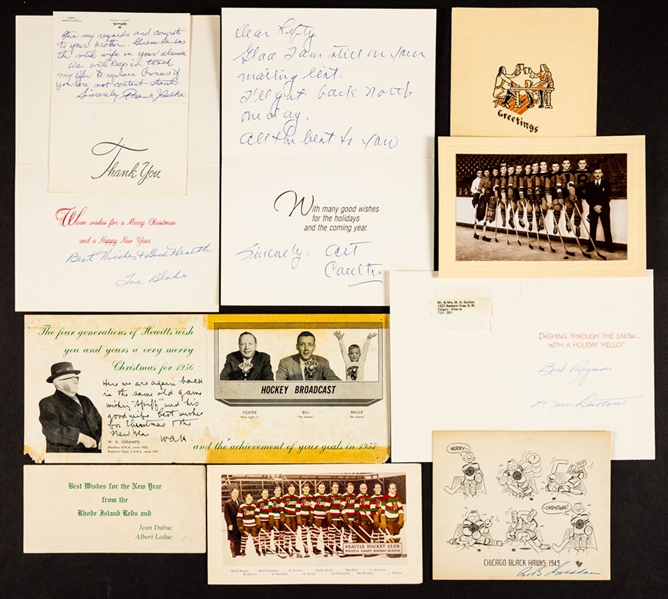 Give my regards and congrats
to your brother.
We will keep in touch.
Sincerely Frank J Selke
Thank You
Warm wishes for a Merry Christmas
and a Happy New Year
Best Wishes & Good Health
Toe Blake
Dear Lefty
Glad I am still on your
mailing list.
I'll get back North
one day.
All the best to you
With many good wishes
for the holidays
and the coming year.
Sincerely. Art
Coulter
Greetings
Mr. & Mrs. M. A. Dutton
Calgary, Alberta
DASHING THROUGH THE SNOW...
WITH A HOLIDAY "HELLO!"
Best Regards
Merv Dutton
The four generations of Hewitts wish
you and yours a very merry
Christmas for 1956
Here we are again back
in the same old game
wishing "Stuff" and his
good wife best wishes
for Christmas & the
New Year
WAH
W. A. (GRAMPS)
HOCKEY BROADCAST
FOSTER
BILL
BRUCE
and the achievement of your goals in 1957
Best Wishes for the New Year
from the
Rhode Island Reds and
Jean Dubuc
Albert Leduc
SEATTLE HOCKEY CLUB
PACIFIC COAST HOCKEY LEAGUE
MERRY-
CHRISTMAS!
CHICAGO BLACK HAWKS, 1949
Bob Goldham